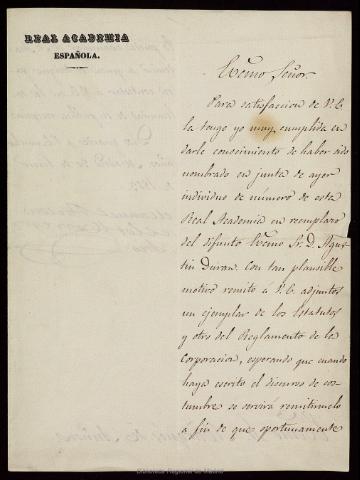 REAL ACADEMIA
ESPAÑOLA.
Excmo Señor
Para satisfaccion de V.E.
la tengo yo muy cumplida en
darle conocimiento de haber sido
nombrado en junta de ayer
individuo de número de esta
Real Academia en reemplazo
del difunto Excmo Sr. D. Agus-
tin Duran. Con tan plausible
motivo remito á V.E. adjuntos
un ejemplar de los Estatutos
y otro del Reglamento de la
Corporacion, esperando que cuando
haya escrito el discurso de cos-
tumbre se servirá remitirmelo
á fin de que oportunamente
Biblioteca Regional de Madrid